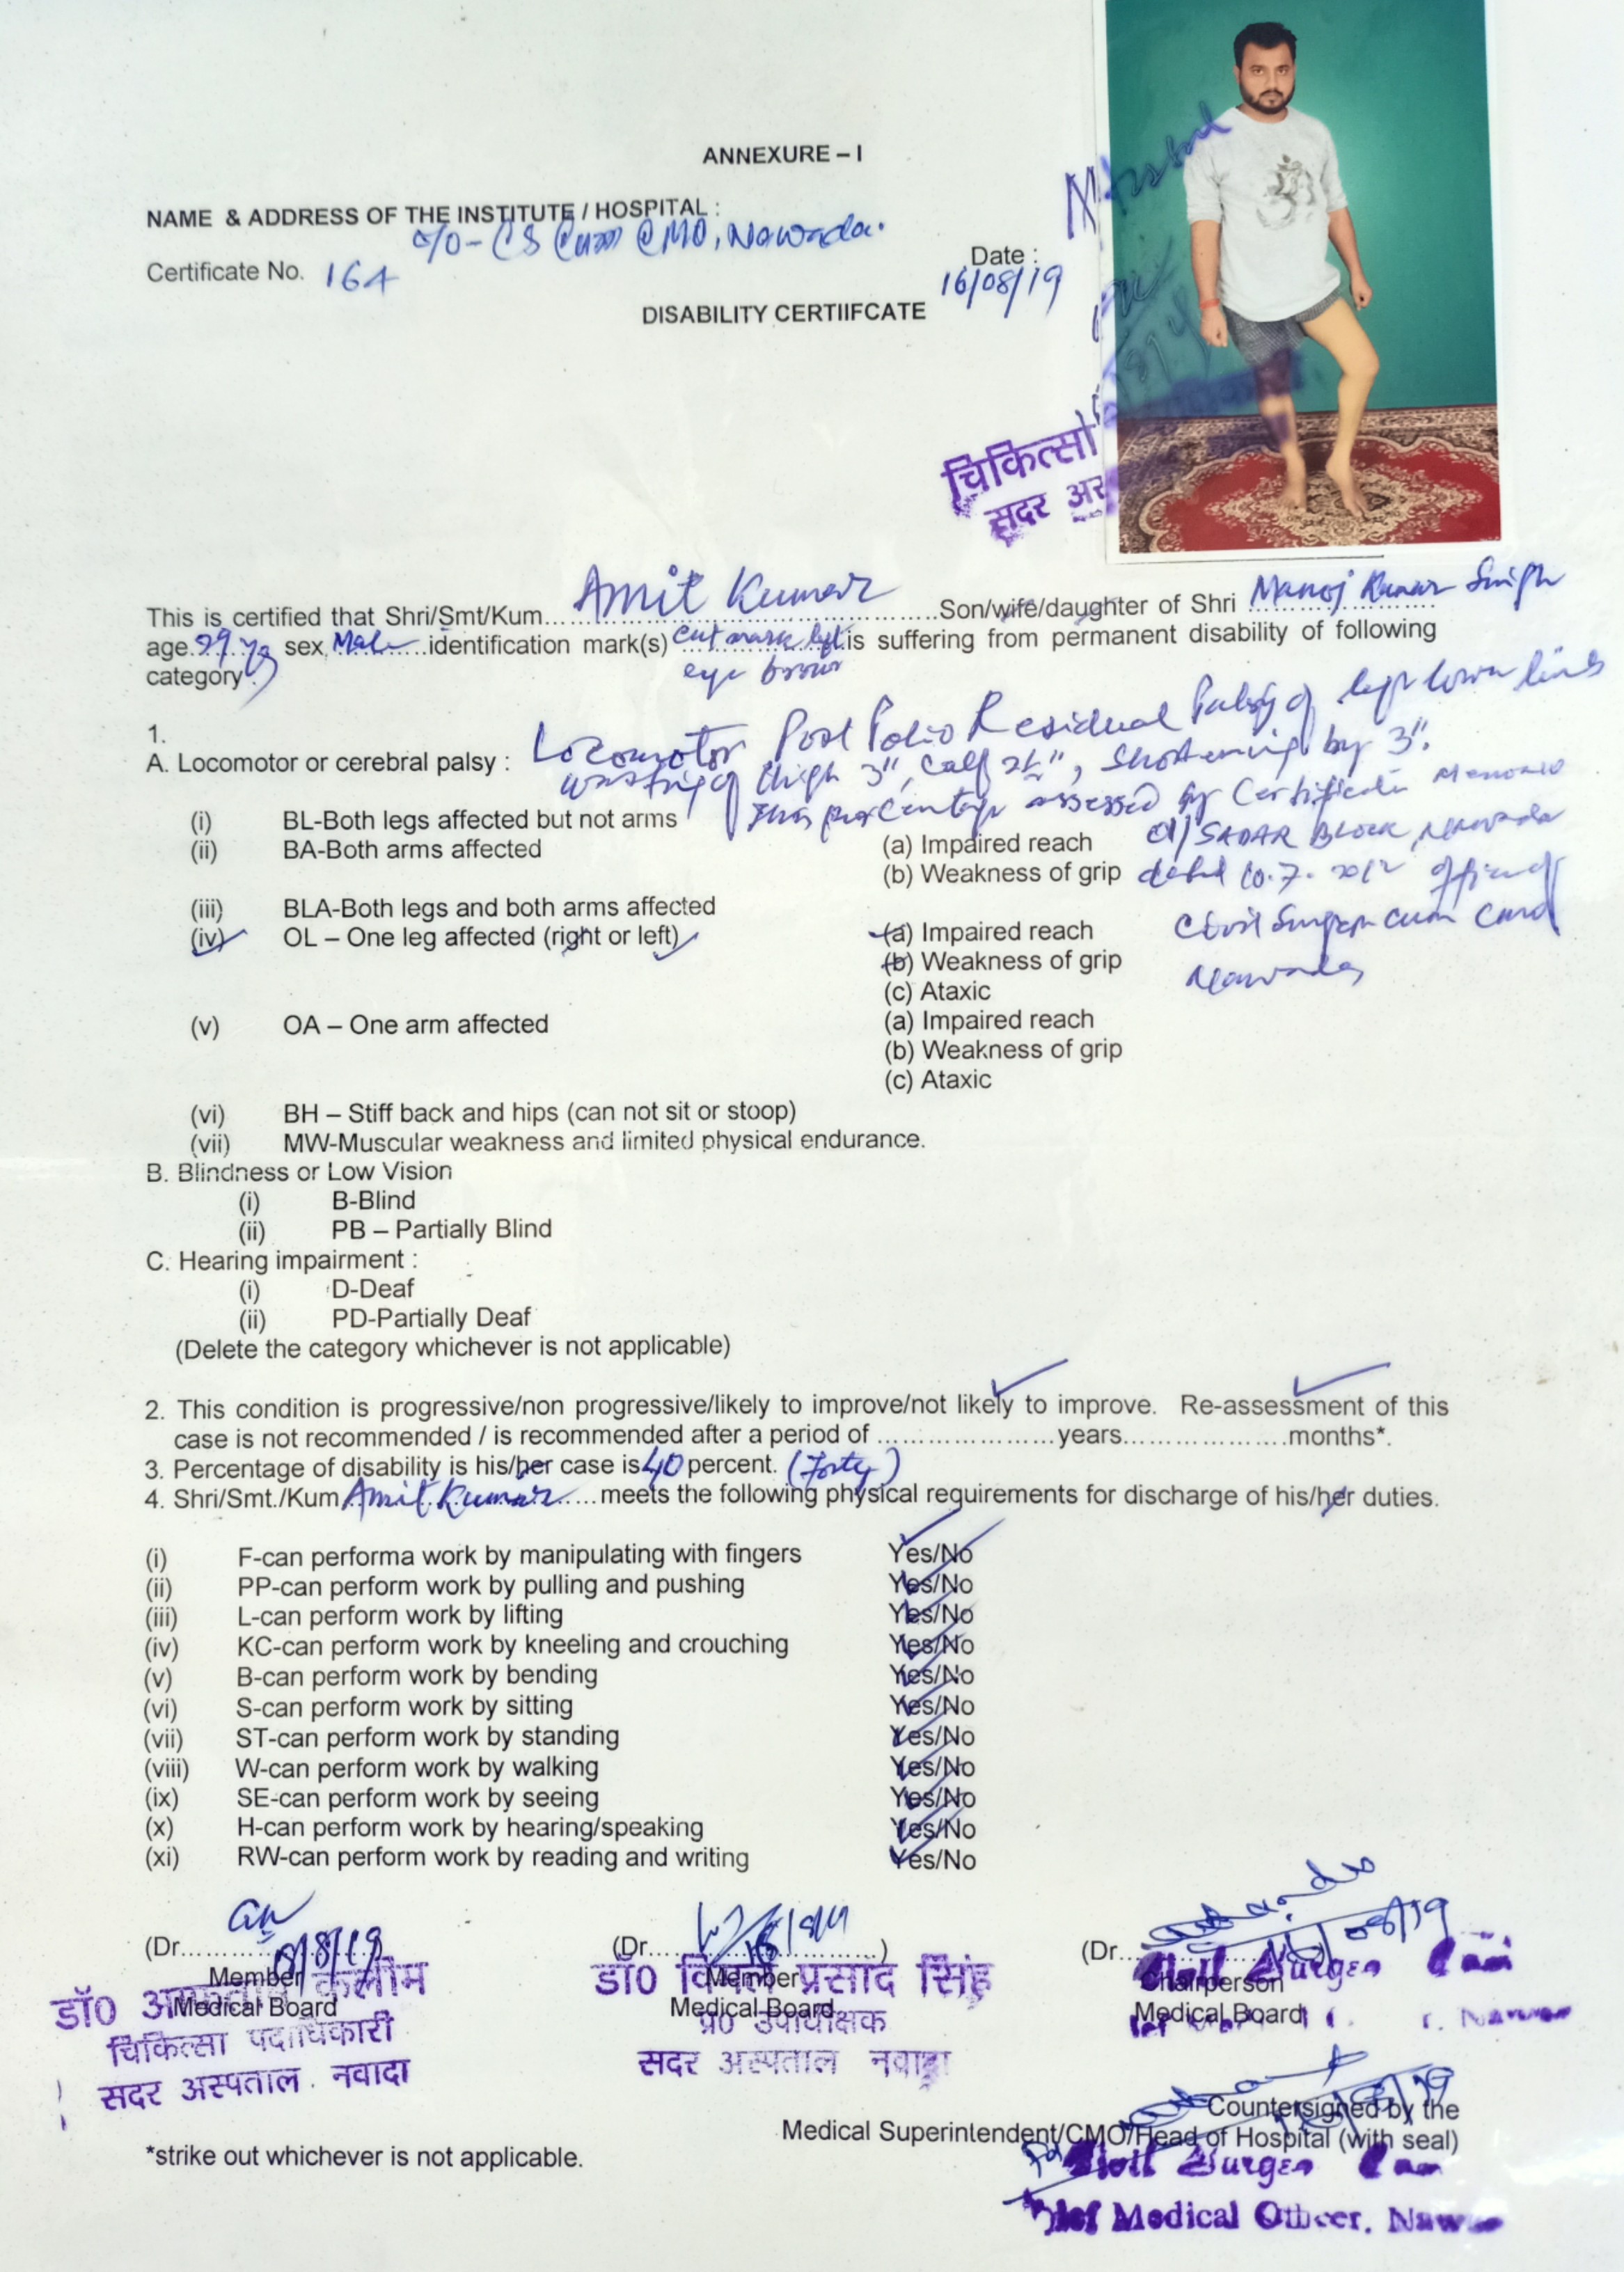 ANNEXURE – I
NAME & ADDRESS OF THE INSTITUTE / HOSPITAL :
O/O- CS Cum CMO, Nawada.
Certificate No. 164
Date :
16/08/19
DISABILITY CERTIIFCATE
चिकित्सा
सदर अस
This is certified that Shri/Smt/Kum. Amit Kumar Son/wife/daughter of Shri Manoj Kumar Singh
age 29 yrs sex Male identification mark(s) cut mark left is suffering from permanent disability of following
eye brow
category
1.
A. Locomotor or cerebral palsy : Locomotor Post Polio Residual Palsy of left lower limb
wasting of thigh 3", calf 2½", Shortening by 3".
This percentage assessed by Certificate Memo no
(i) BL-Both legs affected but not arms
SADAR BLOCK, Nawada
(ii) BA-Both arms affected (a) Impaired reach
(b) Weakness of grip dated 10.7.2012 office of
(iii) BLA-Both legs and both arms affected
Civil Surgeon cum
(iv) OL – One leg affected (right or left) (a) Impaired reach
(b) Weakness of grip
Nawada
(c) Ataxic
(v) OA – One arm affected (a) Impaired reach
(b) Weakness of grip
(c) Ataxic
(vi) BH – Stiff back and hips (can not sit or stoop)
(vii) MW-Muscular weakness and limited physical endurance.
B. Blindness or Low Vision
(i) B-Blind
(ii) PB – Partially Blind
C. Hearing impairment :
(i) D-Deaf
(ii) PD-Partially Deaf
(Delete the category whichever is not applicable)
2. This condition is progressive/non progressive/likely to improve/not likely to improve. Re-assessment of this
case is not recommended / is recommended after a period of ....................years....................months*.
3. Percentage of disability is his/her case is 40 percent. (Forty)
4. Shri/Smt./Kum Amit Kumar.....meets the following physical requirements for discharge of his/her duties.
(i) F-can performa work by manipulating with fingers Yes/No
(ii) PP-can perform work by pulling and pushing Yes/No
(iii) L-can perform work by lifting Yes/No
(iv) KC-can perform work by kneeling and crouching Yes/No
(v) B-can perform work by bending Yes/No
(vi) S-can perform work by sitting Yes/No
(vii) ST-can perform work by standing Yes/No
(viii) W-can perform work by walking Yes/No
(ix) SE-can perform work by seeing Yes/No
(x) H-can perform work by hearing/speaking Yes/No
(xi) RW-can perform work by reading and writing Yes/No
(Dr.................... (Dr....................) (Dr...
Member Member Chairperson
Medical Board Medical Board Medical Board
डॉ0 कलीम
चिकित्सा पदाधिकारी
सदर अस्पताल. नवादा
डॉ0 प्रसाद सिंह
प्र0 उपाधीक्षक
सदर अस्पताल नवादा
Civil Surgeon Cum
Countersigned by the
Medical Superintendent/CMO/Head of Hospital (with seal)
*strike out whichever is not applicable.
Civil Surgeon Cum
Chief Medical Officer, Nawada